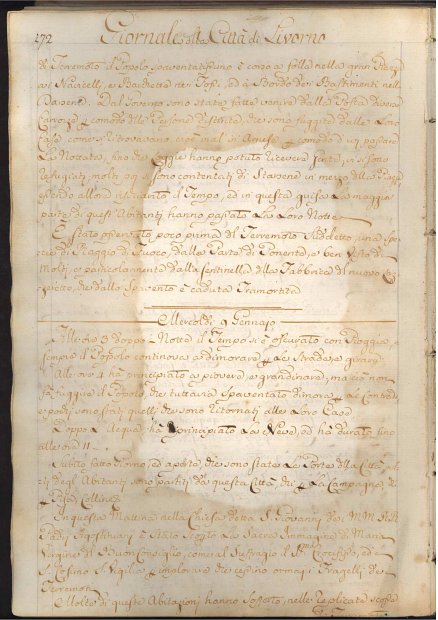 272 Giornale della Città di Livorno
il Teremoto il Popolo spaventatissimo è corso a folla nella gran Piazza
ai Navicelli, e Barchette de Fossi, ed à Bordo de Bastimenti nella
Darsena. Dal Governo sono state fatte venire dalla Posta diverse
Carrozze comodo delle Persone di sono fuggite dalle Loro
Case come si ritrovavano cioè mal in Arnese comodo di qui passare
La Nottata, fino che Legni hanno potuto ricever Gente, vi si sono
refugiati, molti poi si sono contentati di Starsene in mezzo della Piazza
essendo allora il Tempo, ed in questa guisa La maggior
parte di quest' Abitanti hanno passato La Loro Notte
È stato osservato poco prima del Terremoto Suddetto, una Spe-
cie di Raggio di Fuoco, dalla Parte di Ponente, e ben Visto da
Molti, e particolarmente dalla Sentinella della Fabbrica del nuovo
che dallo Spavento è caduta Tramortita
Mercoledì 9 Gennajo
Alle ore 3 doppo Notte il Tempo si è oscurato con Pioggia, e
sempre il Popolo continova a dimorare Le Strade e girare
Alle ore 4 ha principiato a piovere e grandinare, ma ciò non
fà fuggire il Popolo, che tuttavia Spaventato dimora Le Contrade
e pochi sono stati quelli che sono ritornati alle Loro Case
Doppo di che ha principiato La Neve, ed ha durato fino
alle ore 11
Subito fatto Giorno, ed aperte, che sono state Le Porte della Città,
degli Abitanti sono partiti da questa Città, chi La Campagna
Pisa e Colline
In questa Mattina nella Chiesa detta S. Giovanni de M. M. R. R.
Padri Agostiniani è Stato Scoperto La Sacra Immagine di Maria
Vergine del Buon Consiglio, come al Suffragio il SS. Crocifisso, ed a
S. Vigilio implorare che cessino ormai i Fragelli de
Terremoti
Molte di queste Abitazioni hanno Soferto, nelle replicate scosse